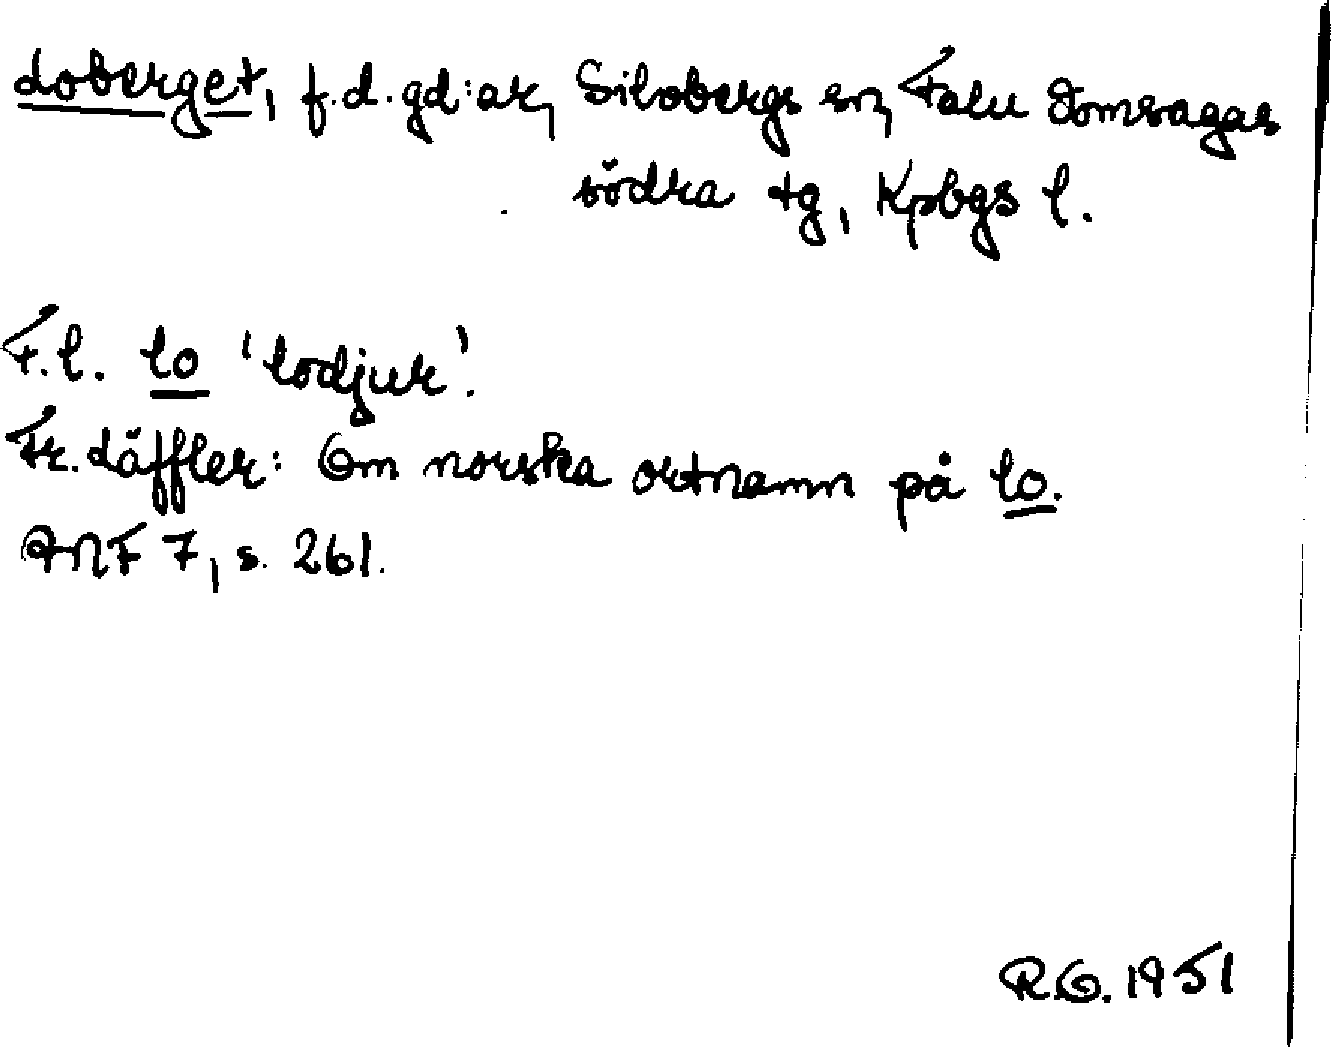 Loberget, f.d. gd:ar, Silvbergs sn, Falu Domsagas
södra tg, Kpbgs l.
F.l. lo 'lodjur'.
Fr. Läffler: Om norska ortnamn på lo.
ANF 7, s. 261.
R.O. 1951